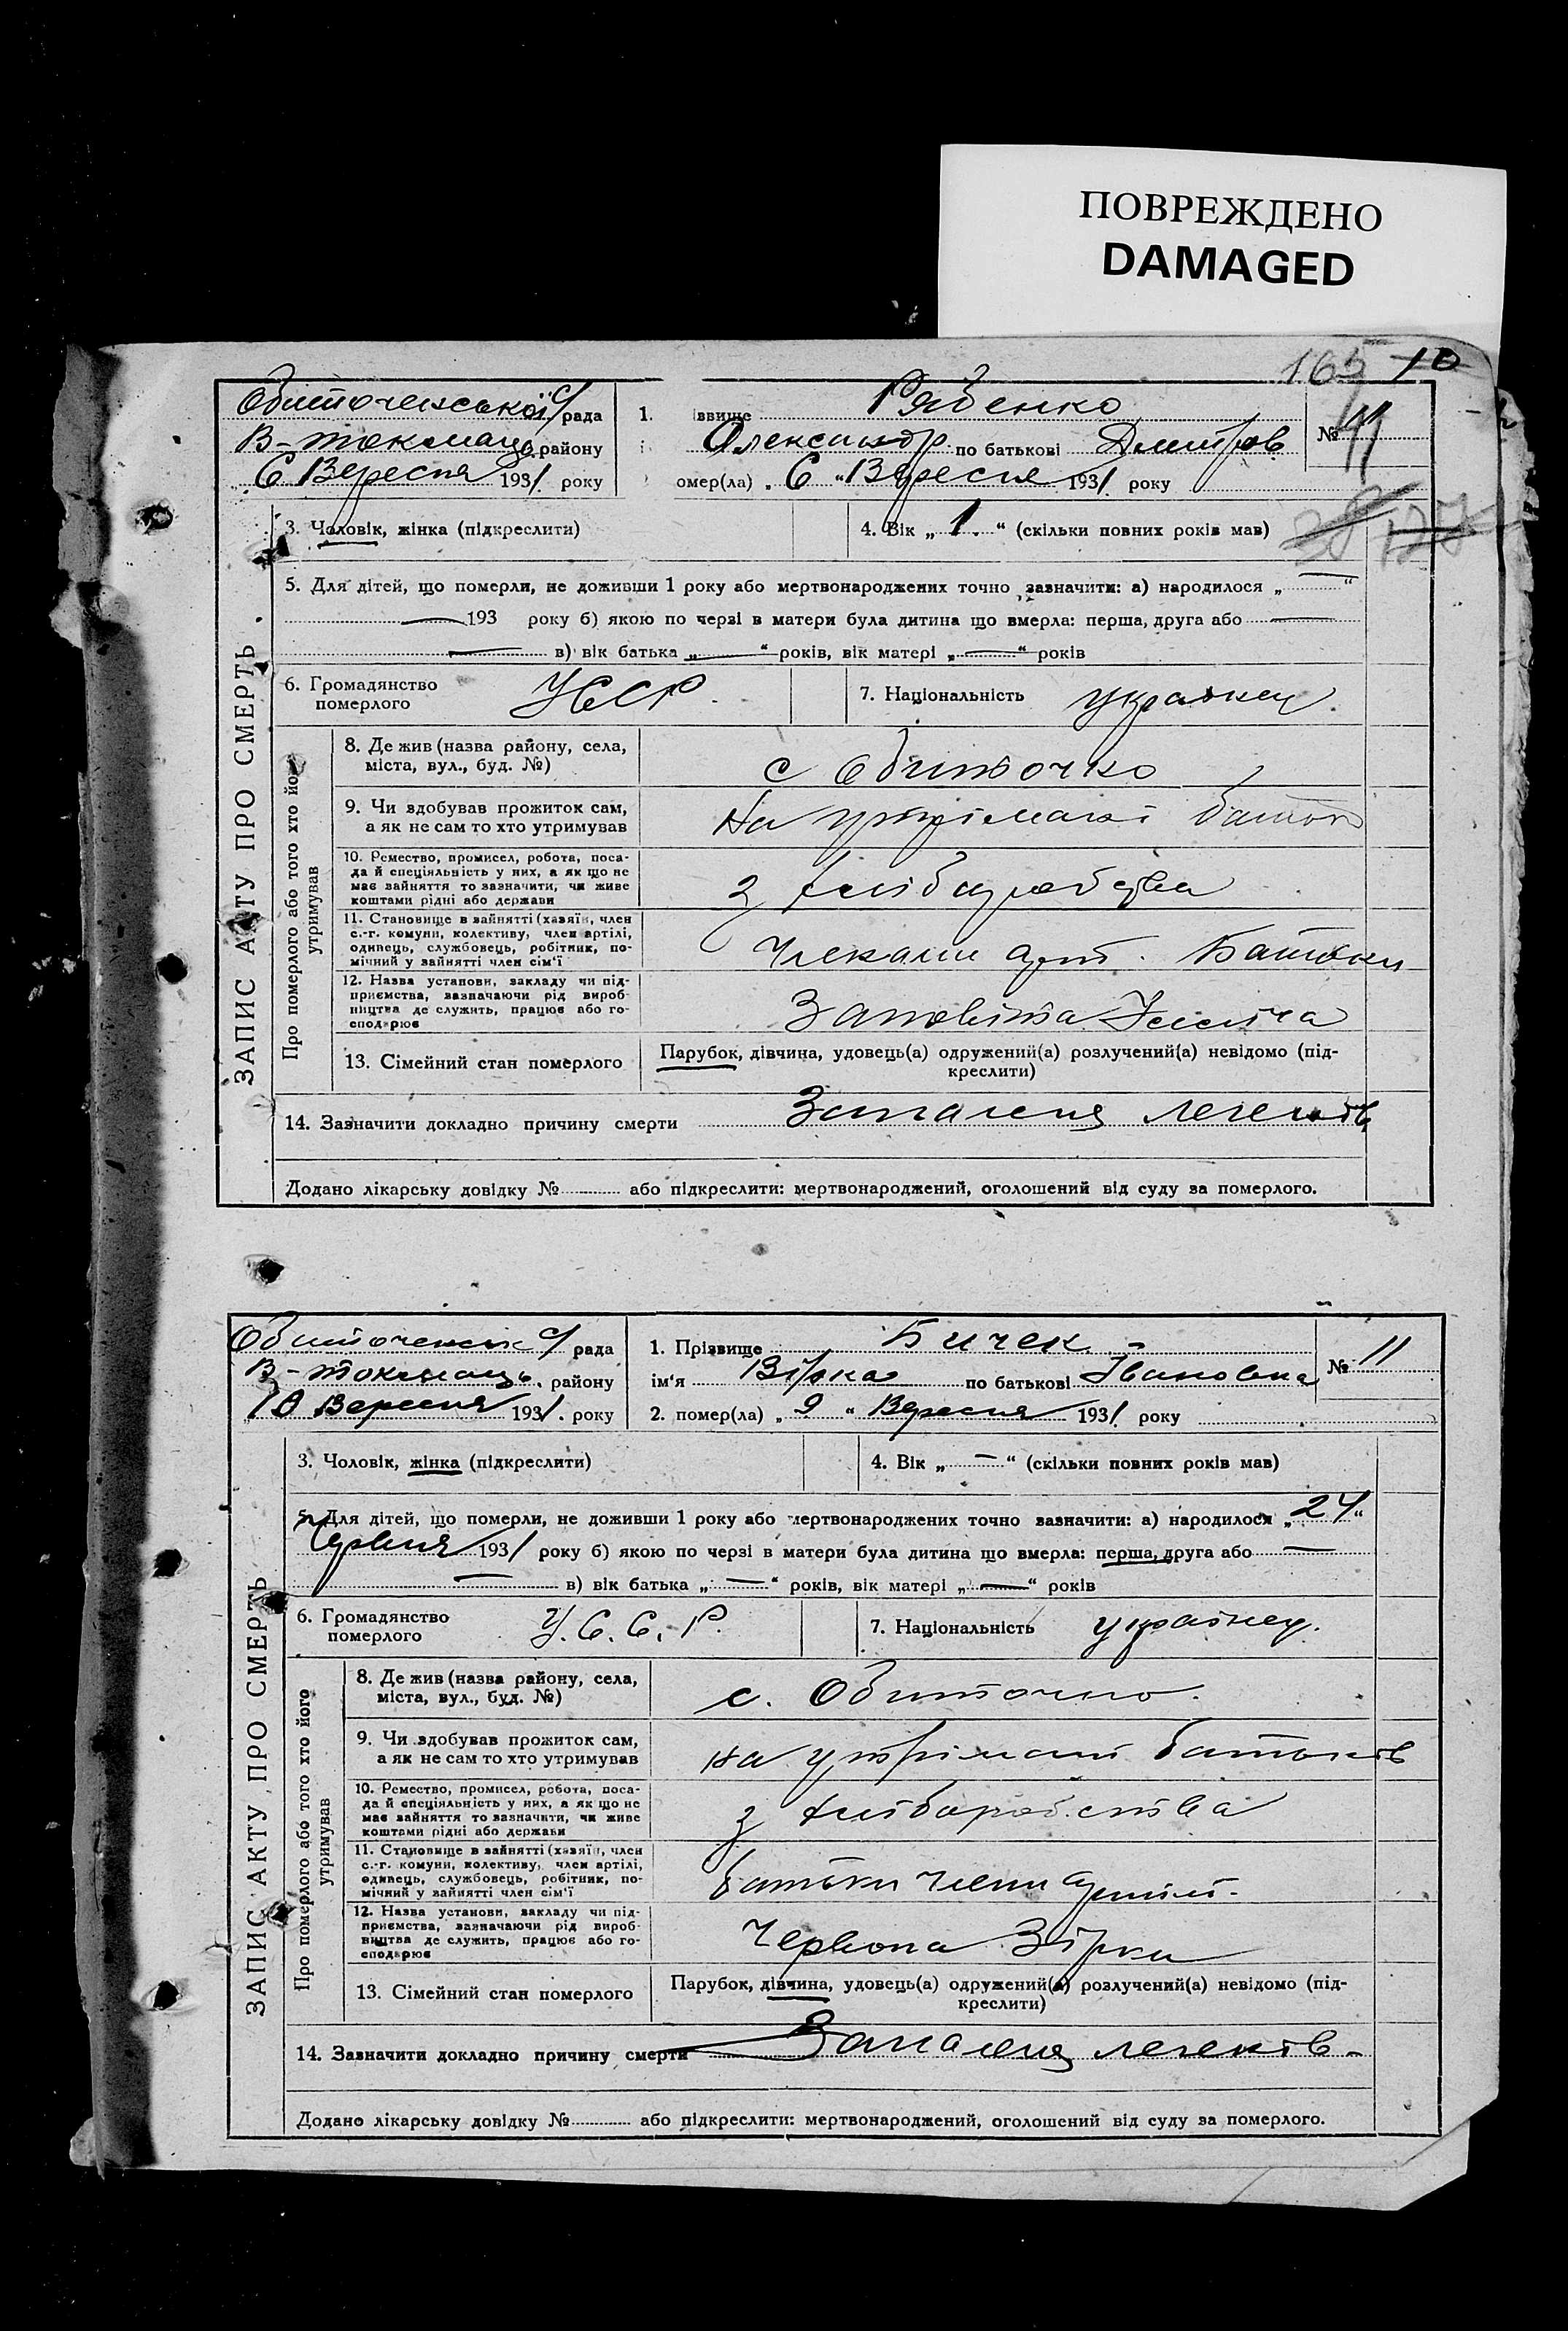 ПОВРЕЖДЕНО
DAMAGED
165 10
Обиточенської с/рада
В-токмаць району
6 Вересня 1931 року
1. ізвище Рябенко
Олександр по батькові Дмитров
№ 11
омер(ла) „ 6 “ Вересня 1931 року
3. Чоловік, жінка (підкреслити)
4. Вік „ 1. “ (скільки повних років мав)
5. Для дітей, що померли, не доживши 1 року або мертвонароджених точно зазначити: а) народилося „ — “
— 193 року б) якою по черзі в матери була дитина що вмерла: перша, друга або —
— в) вік батька „ — “ років, вік матері „ — “ років
6. Громадянство
померлого
УССР.
7. Національність українец.
ЗАПИС АКТУ ПРО СМЕРТЬ
Про померлого або того хто йо
утримував
8. Де жив (назва району, села,
міста, вул., буд. №)
с Обиточно
9. Чи здобував прожиток сам,
а як не сам то хто утримував
на утрімані батьків
10. Ремество, промисел, робота, поса-
да й спеціяльність у них, а як що не
має зайняття то зазначити, чи живе
коштами рідні або держави
з хлібаробства
11. Становище в зайнятті (хазяїн, член
с.-г. комуни, колективу, член артілі,
одинець, службовець, робітник, по-
мічний у зайнятті член сім'ї
Членами арт. Батьки
12. Назва установи, закладу чи під-
приємства, зазначаючи рід вироб-
ництва де служить, працює або го-
сподарює
Заповіта Ілліча
13. Сімейний стан померлого
Парубок, дівчина, удовець(а) одружений(а) розлучений(а) невідомо (під-
креслити)
14. Зазначити докладно причину смерти Запаленя легенів
Додано лікарську довідку № або підкреслити: мертвонароджений, оголошений від суду за померлого.
Обиточенськ с/рада
В-токмаць. району
10 Вересня 1931. року
1. Прізвище Бичек
ім'я Вірка по батькові Івановна
№ 11
2. помер(ла) „ 9 “ Вересня 1931 року
3. Чоловік, жінка (підкреслити)
4. Вік „ — “ (скільки повних років мав)
5. Для дітей, що померли, не доживши 1 року або мертвонароджених точно зазначити: а) народилося „ 24 “
Червня 1931 року б) якою по черзі в матери була дитина що вмерла: перша, друга або —
— в) вік батька „ — “ років, вік матері „ — “ років
6. Громадянство
померлого
У.С.С.Р.
7. Національність українец.
ЗАПИС АКТУ ПРО СМЕРТЬ
Про померлого або того хто його
утримував
8. Де жив (назва району, села,
міста, вул., буд. №)
с. Обиточно.
9. Чи здобував прожиток сам,
а як не сам то хто утримував
на утрімані батьків
10. Ремество, промисел, робота, поса-
да й спеціяльність у них, а як що не
має зайняття то зазначити, чи живе
коштами рідні або держави
з хлібаробства
11. Становище в зайнятті (хазяїн, член
с.-г. комуни, колективу, член артілі,
одинець, службовець, робітник, по-
мічний у зайнятті член сім'ї
батьки члени артіл.
12. Назва установи, закладу чи під-
приємства, зазначаючи рід вироб-
ництва де служить, працює або го-
сподарює
Червона Зірки
13. Сімейний стан померлого
Парубок, дівчина, удовець(а) одружений(а) розлучений(а) невідомо (під-
креслити)
14. Зазначити докладно причину смерти Запаленя легенів
Додано лікарську довідку № або підкреслити: мертвонароджений, оголошений від суду за померлого.